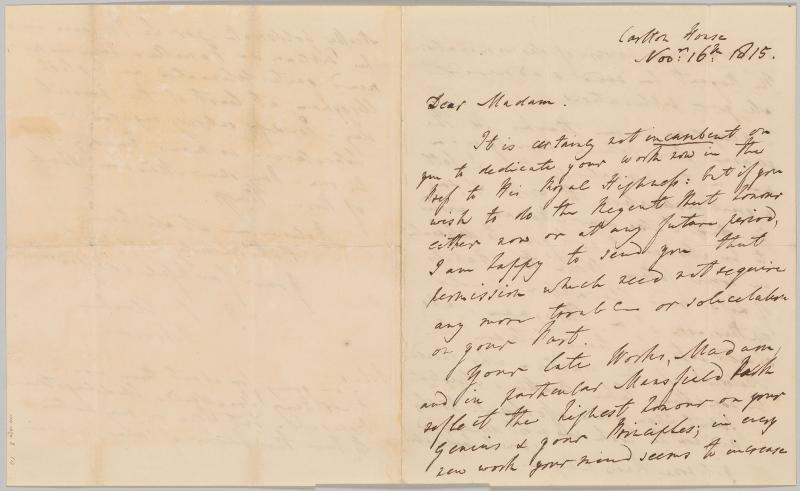 Carlton House
Novr. 16th. 1815.
Dear Madam.
It is certainly not incumbent on
you to dedicate your work now in the
Press to His Royal Highness: but if you
wish to do the Regent that honour
either now or at any future period,
I am happy to send you that
permission which need not require
any more trouble or solicitation
on your Part.
Your late Works, Madam,
and in particular Mansfield Park
reflect the highest honour on your
Genius & your Principles; in every
new work your mind seems to increase